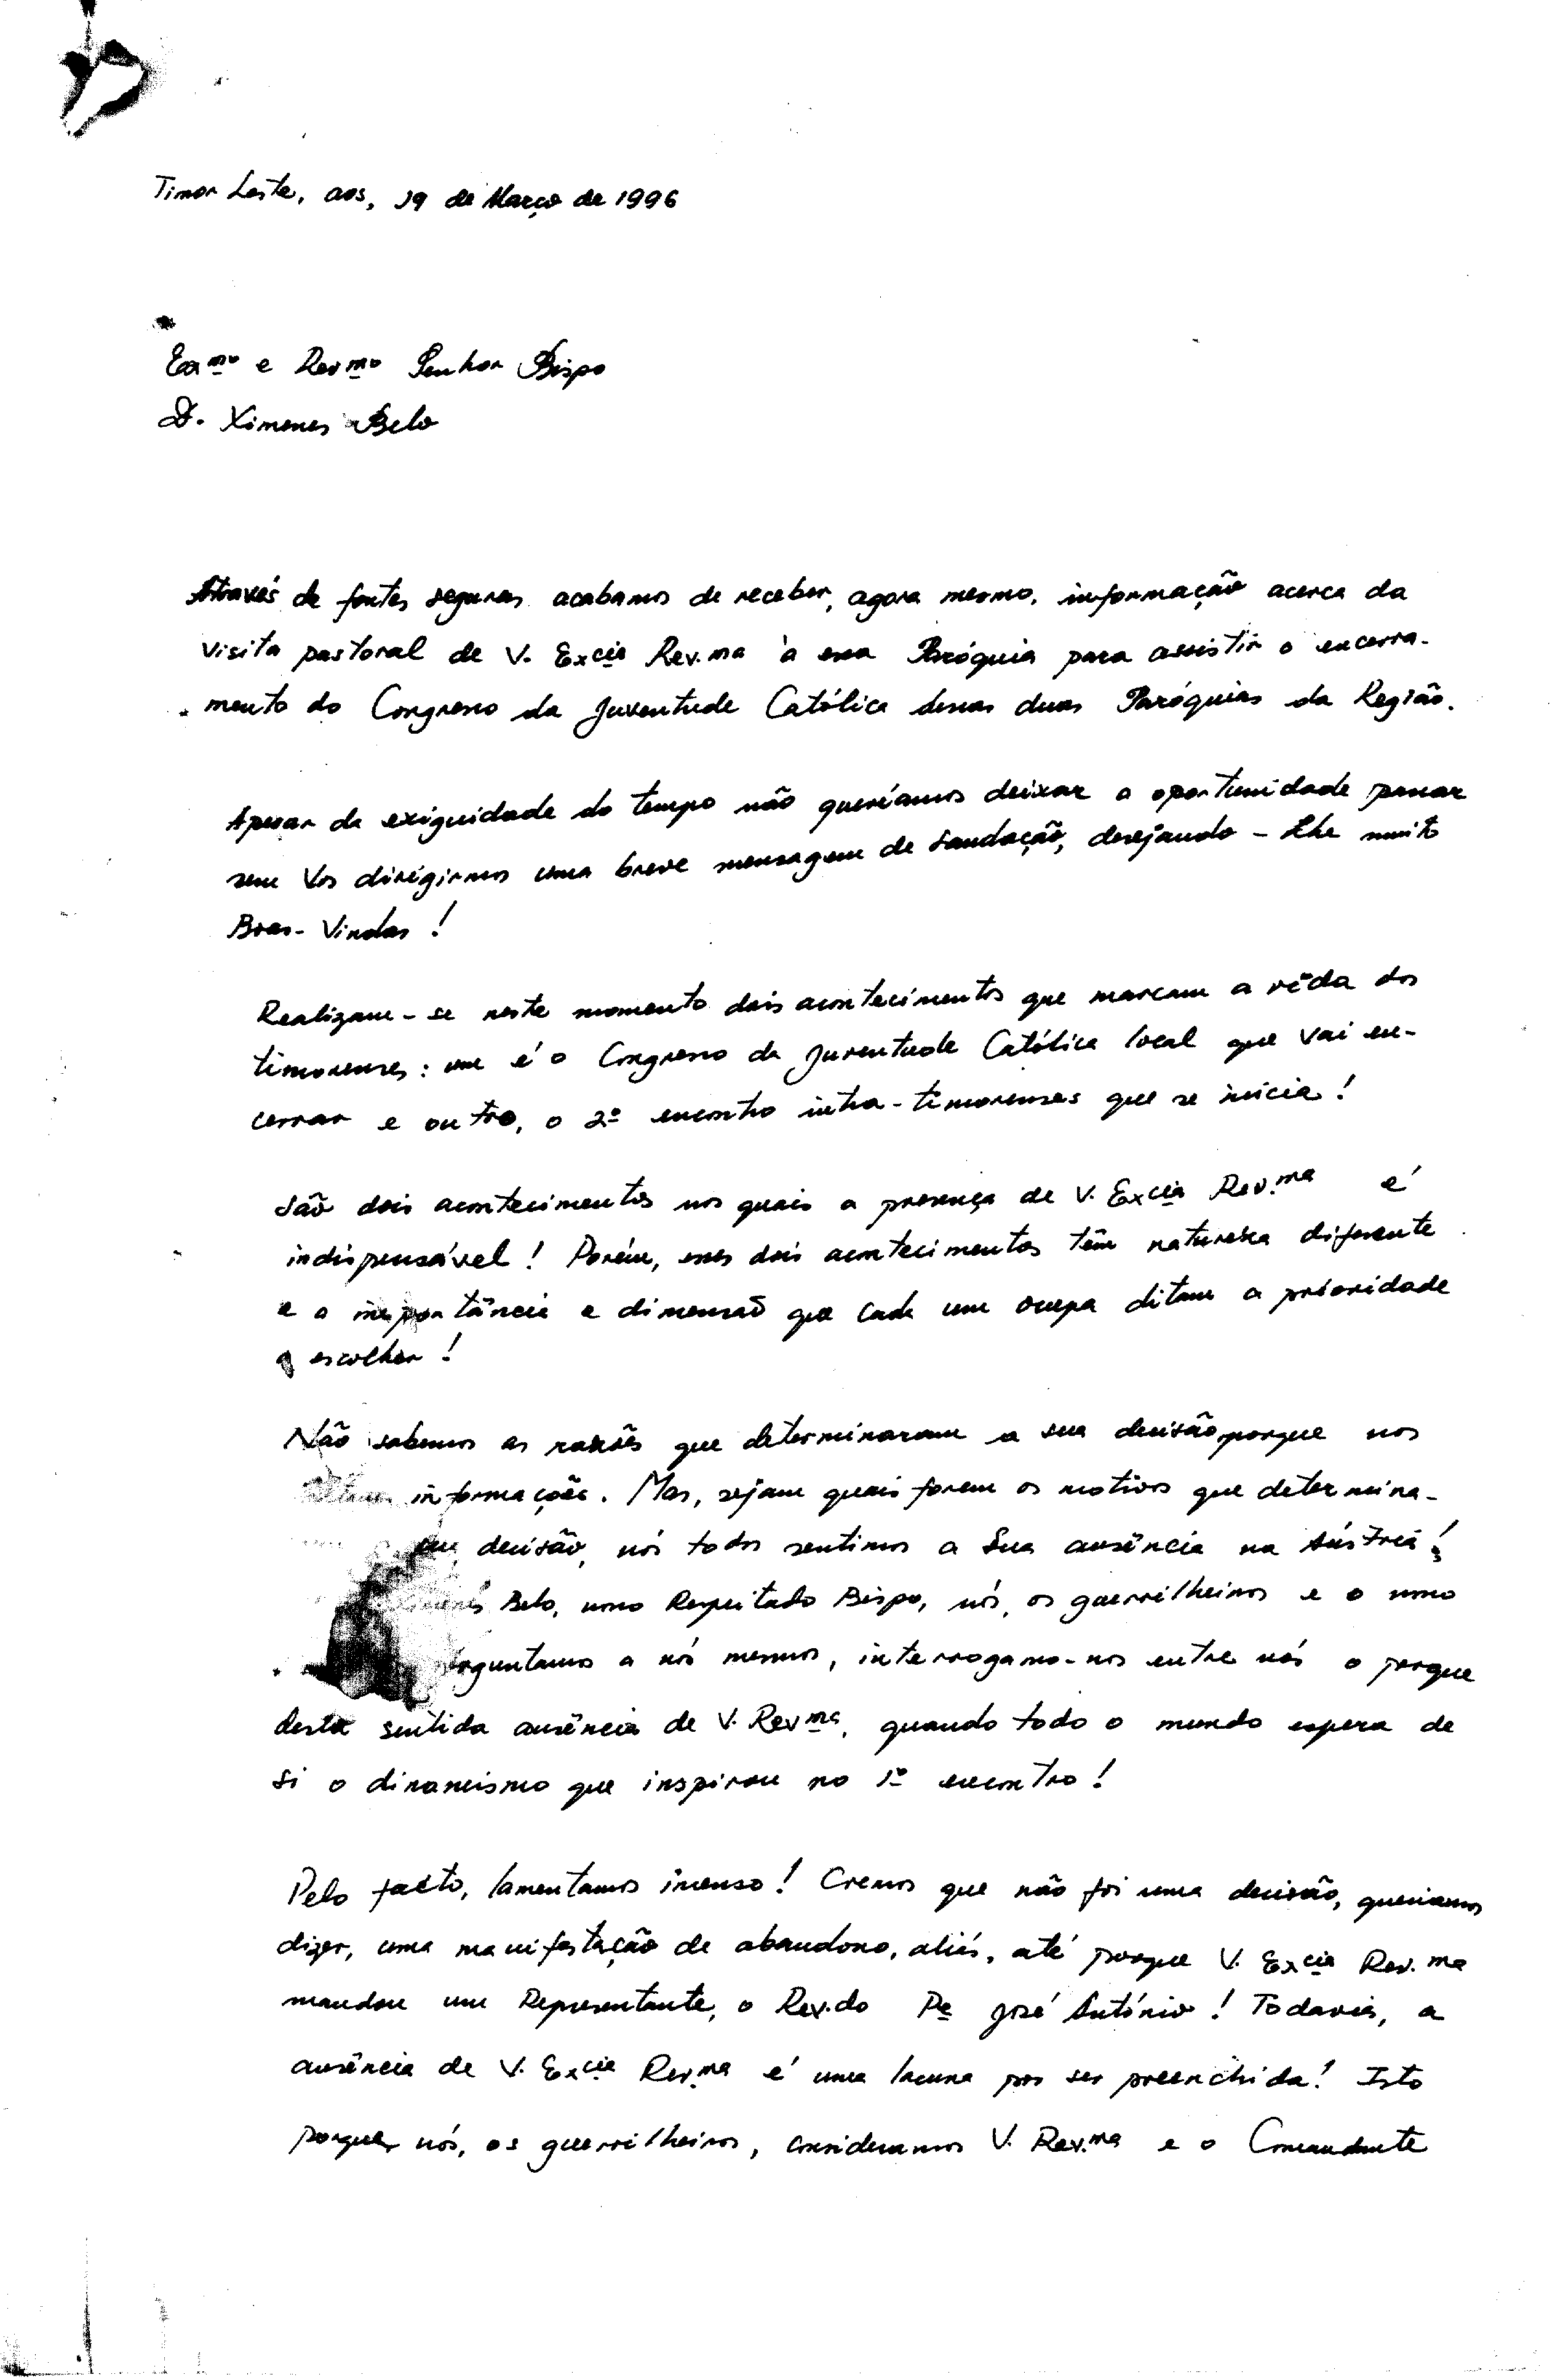 Timor Leste, aos, 19 de Março de 1996
Exmo e Revmo Senhor Bispo
D. Ximenes Belo
Através de fontes seguras acabamos de receber, agora mesmo, informação acerca da
visita pastoral de V. Excia Rev.ma à essa Paróquia para assistir o encerra-
mento do Congresso da Juventude Católica dessas duas Paróquias da Região.
Apesar da exiguidade do tempo não queríamos deixar a oportunidade passar
sem Vos dirigirmos uma breve mensagem de saudação, desejando-Lhe muito
Boas-Vindas!
Realizam-se neste momento dois acontecimentos que marcam a vida dos
timorenses: um é o Congresso da Juventude Católica local que vai en-
cerrar e outro, o 2º encontro intra-timorenses que se inicia!
São dois acontecimentos nos quais a presença de V. Excia Rev.ma é
indispensável! Porém, esses dois acontecimentos têm natureza diferente
e a importância e dimensão que cada um ocupa ditam a prioridade
a escolher!
Não sabemos as razões que determinaram a sua decisão, porque nos
informações. Mas, sejam quais forem os motivos que determina-
decisão, nós todos sentimos a Sua ausência na Áustria!
Belo, nosso Respeitado Bispo, nós, os guerrilheiros e o nosso
perguntamos a nós mesmos, interrogamo-nos entre nós o porque
desta sentida ausência de V. Revma, quando todo o mundo espera de
si o dinamismo que inspirou no 1º encontro!
Pelo facto, lamentamos imenso! Cremos que não foi uma decisão, queriamos
dizer, uma manifestação de abandono, aliás, até porque V. Excia Rev.ma
mandou um Representante, o Rev.do Pe José António! Todavia, a
ausência de V. Excia Rev.ma é uma lacuna por ser preenchida! Isto
porque, nós, os guerrilheiros, consideramos V. Rev.ma e o Comandante